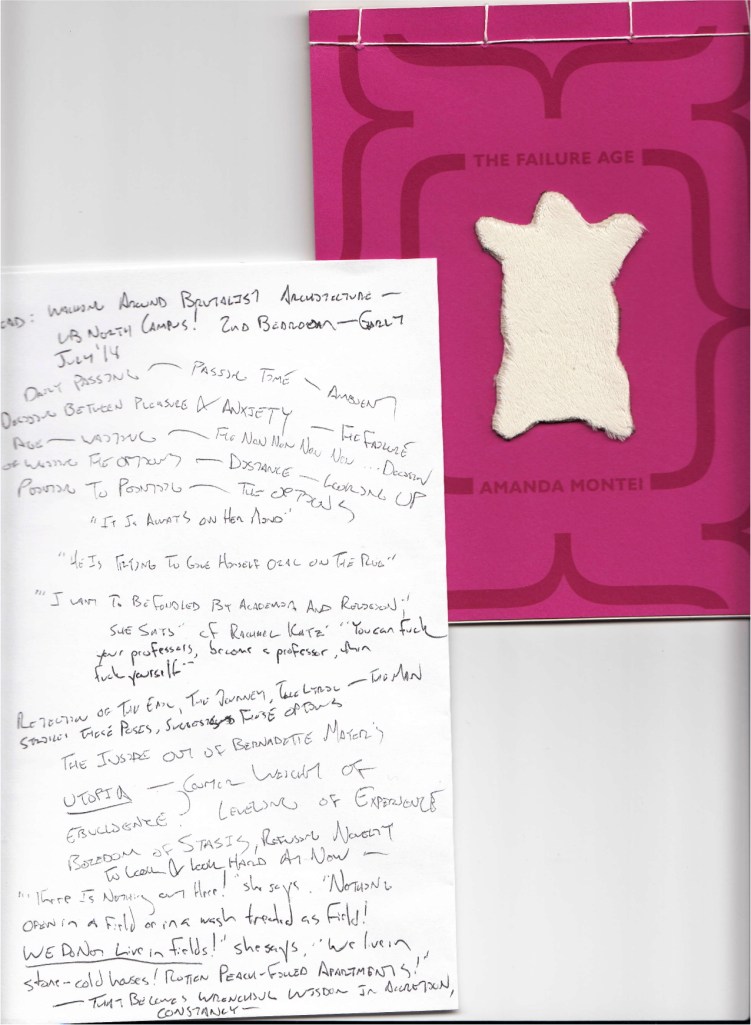 THE FAILURE AGE
AMANDA MONTEI
: WALKING AROUND BRUTALIST ARCHITECTURE —
UB NORTH CAMPUS! 2ND BEDROOM — EARLY
JULY '14
DAILY PASSING — PASSING TIME — AMBIENT
DECIDING BETWEEN PLEASURE & ANXIETY — THE FAILURE
AGE — WAITING — THE NOW NOW NOW NOW ... DECISION
OF WAITING THE OPTIONS — DISTANCE — LOOKING UP
POSITION TO POSITION — THE OPTIONS
"IT IS ALWAYS ON HER MIND"
"HE IS TRYING TO GIVE HIMSELF ORAL ON THE RUG"
"'I WANT TO BE FONDLED BY ACADEMIA AND RELIGION,'
SHE SAYS" CF RACHEL KATZ' "You can fuck
your professors, become a professor, then
fuck yourself"
REJECTION OF THE EPIC, THE JOURNEY, THE LYRIC — THE MAN
STRIKES THESE POSES, SUGGESTS THESE OPTIONS
THE INSIDE OUT OF BERNADETTE MAYER'S
UTOPIA — COUNTER WEIGHT OF
EBULLIENCE! LEVELING OF EXPERIENCE
BOREDOM OF STASIS, REFUSING NOVELTY
TO LOOK & LOOK HARD AT NOW —
"'There IS NOTHING out Here!' she says. 'NOTHING
OPEN in a Field or in a wash treated as Field!
WE DO NOT Live in fields!' she says, 'We live in
stone-cold houses! ROTTEN PEACH-FILLED APARTMENTS!'"
— THAT BECOMES WRENCHING WISDOM IN ACCRETION,
CONSTANCY —